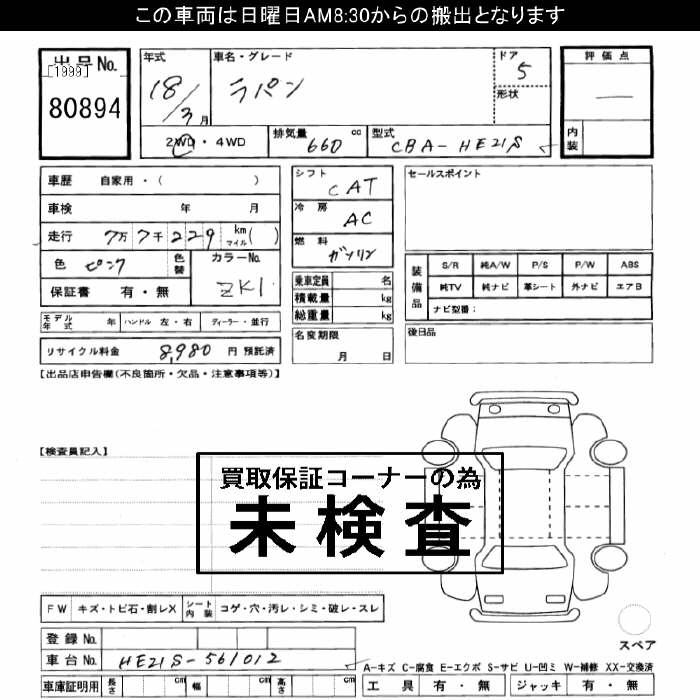 この車両は日曜日AM8:30からの搬出となります
出品No.
[1999]
80894
年式
18/3月
車名・グレード
ラパン
ドア
5
形状
評価点
—
内装
2WD・4WD
排気量 660 cc
型式 CBA-HE21S
車歴 自家用・( )
車検 年 月
走行 7万7千229 km マイル( )
色 ピンク 色替
カラーNo. ZK1
保証書 有・無
モデル年式 年 ハンドル 左・右 ディーラー・並行
リサイクル料金 8,980 円 預託済
シフト CAT
冷房 AC
燃料 ガソリン
乗車定員 名
積載量 kg
総重量 kg
名変期限
月 日
セールスポイント
装備品
S/R 純A/W P/S P/W ABS
純TV 純ナビ 革シート 外ナビ エアB
ナビ型番:
後日品
【出品店申告欄(不良箇所・欠品・注意事項等)】
【検査員記入】
買取保証コーナーの為
未検査
FW キズ・トビ石・割レX シート内装 コゲ・穴・汚レ・シミ・破レ・スレ
登録No.
車台No. HE21S-561012
車庫証明用 長さ cm 幅 cm 高さ cm
スペア
A-キズ C-腐食 E-エクボ S-サビ U-凹ミ W-補修 XX-交換済
工具 有・無 ジャッキ 有・無